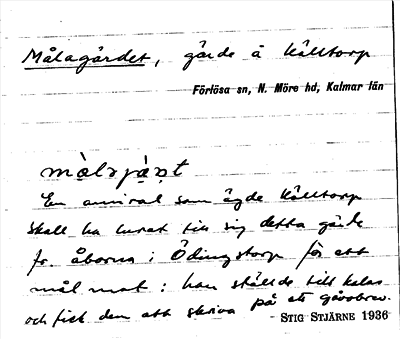 Målagärdet, gärde å Källtorp
Förlösa sn, N. Möre hd, Kalmar län
En amiral som ägde Källtorp
skall ha lurat till sig detta gärde
fr. åborna i Ödingstorp för ett
mål mat: han ställde till kalas
och fick dem att skriva på ett gåvobrev.
STIG STJÄRNE 1936